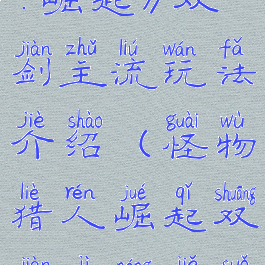 崛起》双
jiàn zhǔ liú wán fǎ
剑主流玩法
jiè shào guài wù
介绍（怪物
liè rén jué qǐ shuāng
猎人崛起双